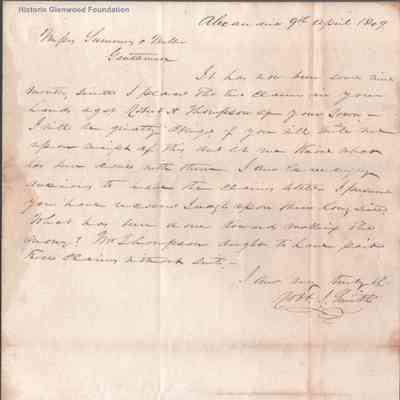 Historic Glenwood Foundation
Alexandria 9th April 1849
Messrs Summers & Miller
Gentlemen
It has now been some nine
months since I placed the two claims in your
hands agst Robert A Thompson of your Town —
I will be greatly obliged if you will write me
upon receipt of this and let me know what
has been done with them. I am
anxious to have the claims settled I presume
you have recovered Judgts upon them long since
What has been done toward making the
money? Mr Thompson ought to have paid
these claims without suit. —
I am very truly &c
J. Smith